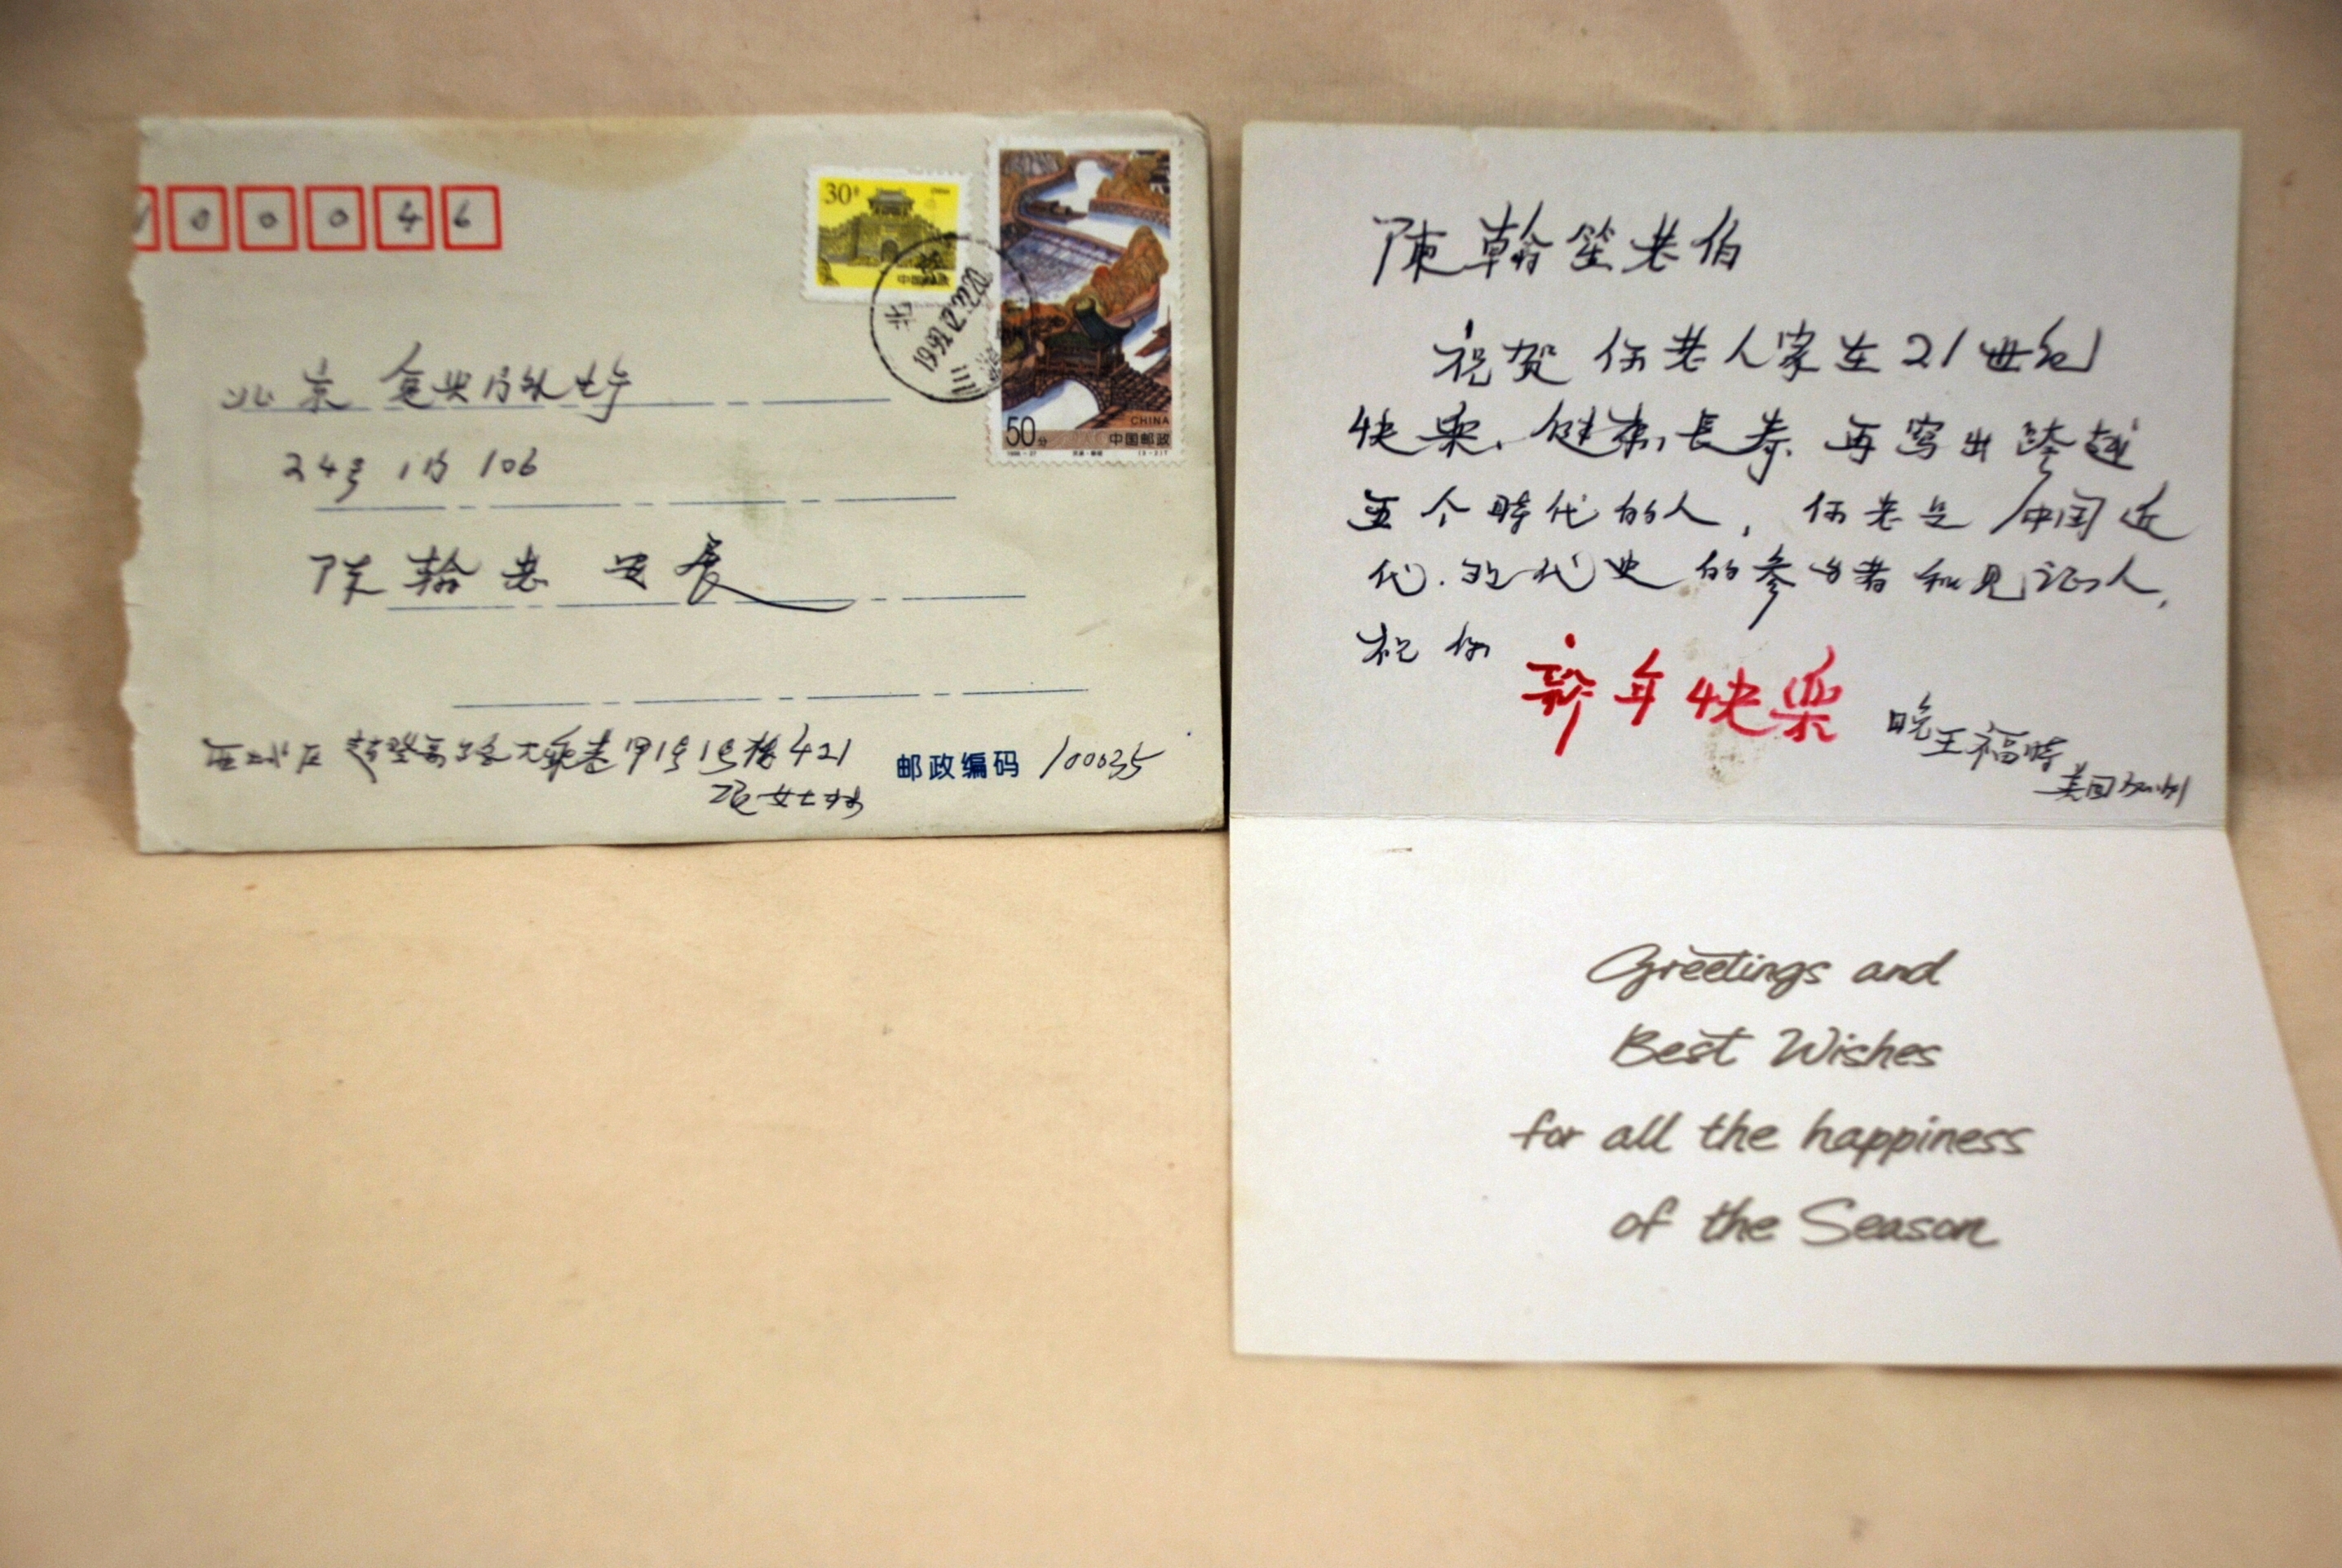 100046
30分
中国邮政
北京
1999.12.27.20
50分
CHINA
中国邮政
北京 复兴门外大街
24号 1门 106
陈翰老 安展
西城区 赵登禹路大乘巷甲1号1号楼421
邮政编码 100035
陈翰笙老伯
祝贺 你老人家在21世纪
快樂、健康、長寿、再写出跨越
五个時代的人, 你老是中国近
代.现代史的参与者和见证人,
祝你 新年快樂
晚王福時
美国
Greetings and
Best Wishes
for all the happiness
of the Season